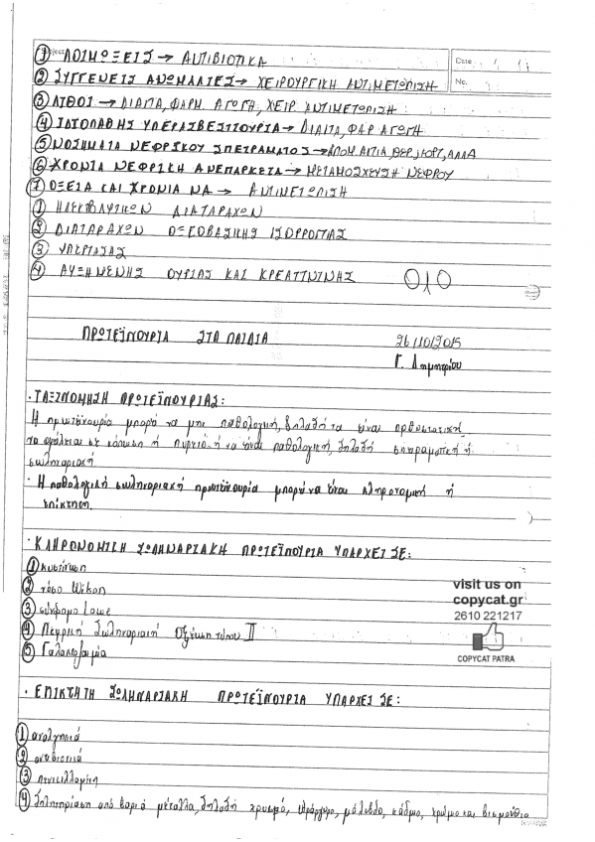 ① ΛΟΙΜΩΞΕΙΣ → ΑΝΤΙΒΙΟΤΙΚΑ
Date
② ΣΥΓΓΕΝΕΙΣ ΑΝΩΜΑΛΙΕΣ → ΧΕΙΡΟΥΡΓΙΚΗ ΑΝΤΙΜΕΤΩΠΙΣΗ
No.
③ ΛΙΘΟΙ → ΔΙΑΙΤΑ, ΦΑΡΜ. ΑΓΩΓΗ, ΧΕΙΡ. ΑΝΤΙΜΕΤΩΠΙΣΗ
④ ΙΔΙΟΠΑΘΗΣ ΥΠΕΡΑΣΒΕΣΤΙΟΥΡΙΑ → ΔΙΑΙΤΑ, ΦΑΡ ΑΓΩΓΗ
⑤ ΝΟΣΗΜΑΤΑ ΝΕΦΡΙΚΟΥ ΣΠΕΙΡΑΜΑΤΟΣ →
⑥ ΧΡΟΝΙΑ ΝΕΦΡΙΚΗ ΑΝΕΠΑΡΚΕΙΑ → ΜΕΤΑΜΟΣΧΕΥΣΗ ΝΕΦΡΟΥ
⑦ ΟΞΕΙΑ ΚΑΙ ΧΡΟΝΙΑ ΝΑ → ΑΝΤΙΜΕΤΩΠΙΣΗ
① ΗΛΕΚΤΡΟΛΥΤΙΚΩΝ ΔΙΑΤΑΡΑΧΩΝ
② ΔΙΑΤΑΡΑΧΩΝ ΟΞΕΟΒΑΣΙΚΗΣ ΙΣΟΡΡΟΠΙΑΣ
③ ΥΠΕΡΤΑΣΗΣ
④ ΑΥΞΗΜΕΝΗΣ ΟΥΡΙΑΣ ΚΑΙ ΚΡΕΑΤΙΝΙΝΗΣ
ΠΡΩΤΕΪΝΟΥΡΙΑ ΣΤΑ ΠΑΙΔΙΑ
26/10/2015
Γ. Δημητρίου
· ΤΑΞΙΝΟΜΗΣΗ ΠΡΩΤΕΪΝΟΥΡΙΑΣ:
Η πρωτεϊνουρία μπορεί να μην παθολογική, δηλαδή να είναι ορθοστατική
να οφείλεται σε κόπωση ή πυρετό ή να είναι παθολογική, δηλαδή σπειραματική ή
σωληναριακή
· Η παθολογική σωληναριακή πρωτεϊνουρία μπορεί να είναι κληρονομική ή
επίκτητη.
· ΚΛΗΡΟΝΟΜΙΚΗ ΣΩΛΗΝΑΡΙΑΚΗ ΠΡΩΤΕΪΝΟΥΡΙΑ ΥΠΑΡΧΕΙ ΣΕ:
① κυστίνωση
② νόσο Wilson
③ σύνδρομο Lowe
④ Νεφρική Σωληναριακή Οξέωση τύπου ΙΙ
⑤ Γαλακτοζαιμία
visit us on
copycat.gr
2610 221217
COPYCAT PATRA
· ΕΠΙΚΤΗΤΗ ΣΩΛΗΝΑΡΙΑΚΗ ΠΡΩΤΕΪΝΟΥΡΙΑ ΥΠΑΡΧΕΙ ΣΕ:
① αναλγητικά
② αντιβιοτικά
③ πενικιλλαμίνη
④ δηλητηρίαση από βαριά μέταλλα, δηλαδή χρυσό, υδράργυρο, μόλυβδο, κάδμιο, χρώμιο και βισμούθιο